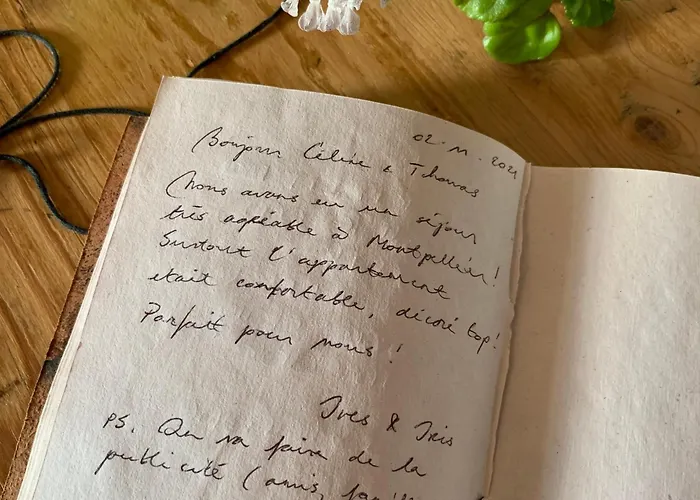 02.11.2021
Bonjour Céline & Thomas
Nous avons eu un séjour
très agréable à Montpellier!
Surtout l'appartement
etait comfortable, décoré top!
Parfait pour nous!
Ives & Iris
PS. On va faire de la
publicité (amis,